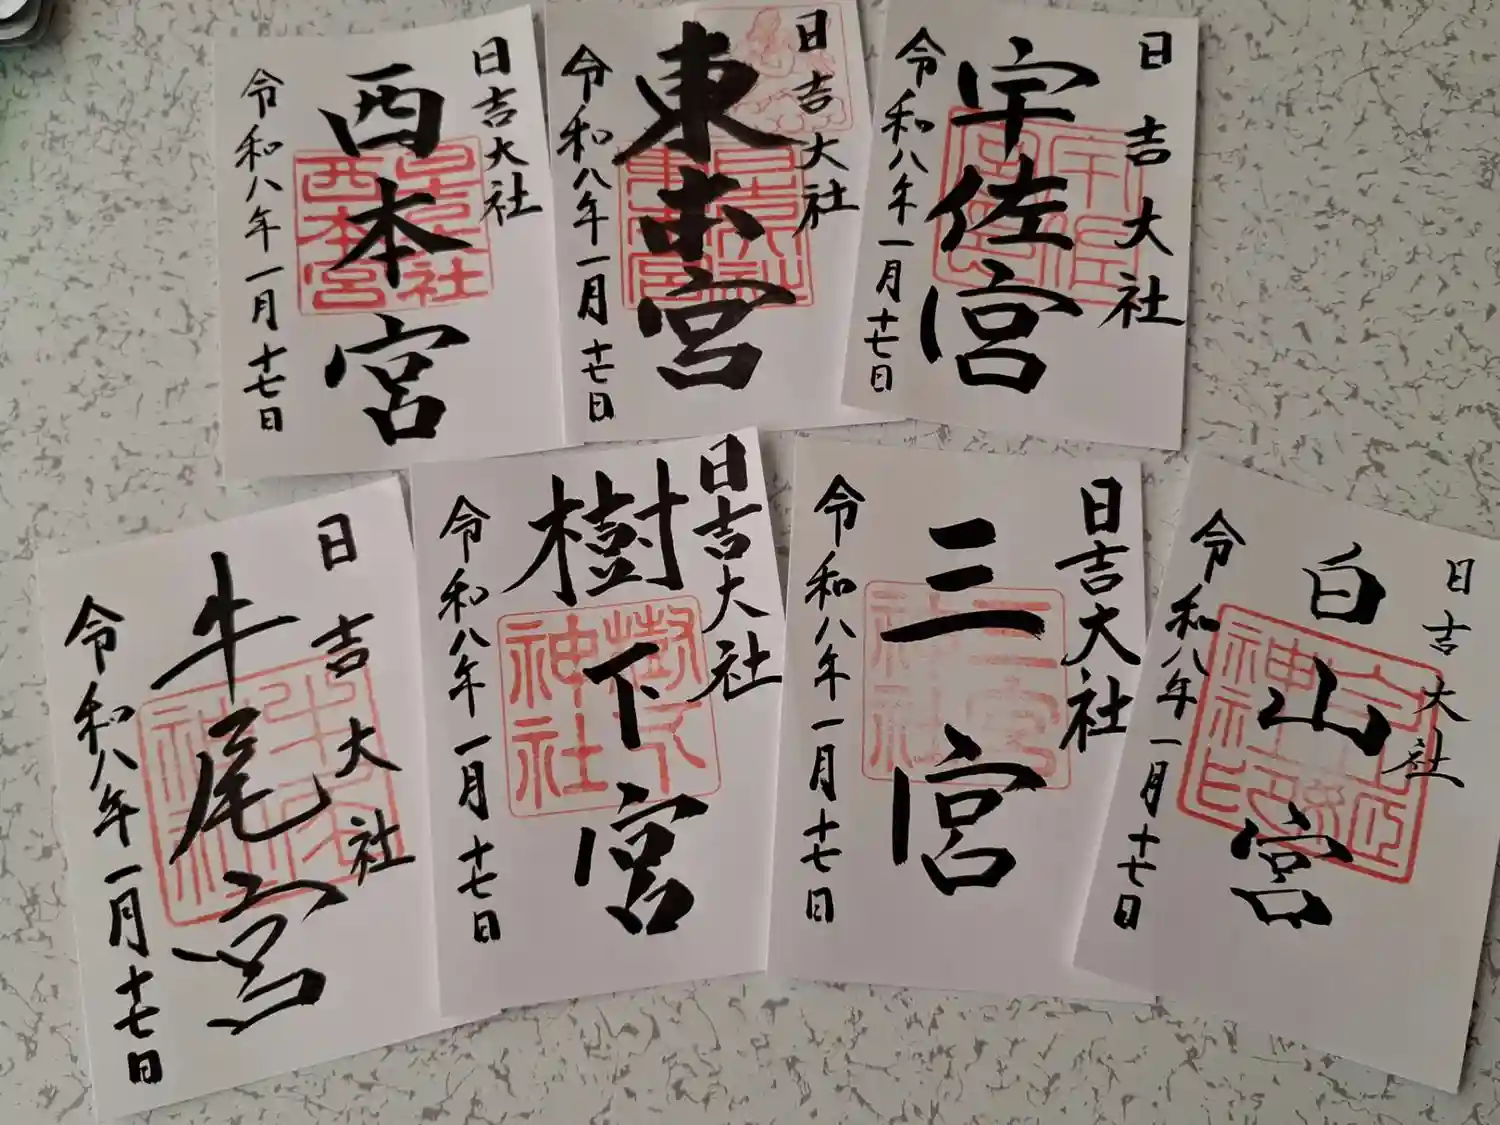 日吉大社
西本宮
令和八年一月十七日
日吉大社
西本宮
日吉大社
東本宮
令和八年一月十七日
日吉大社
宇佐宮
令和八年一月十七日
日吉大社
牛尾宮
令和八年一月十七日
日吉大社
樹下宮
令和八年一月十七日
樹下
神社
日吉大社
三宮
令和八年一月十七日
三宮
神社
日吉大社
白山宮
令和八年一月十七日